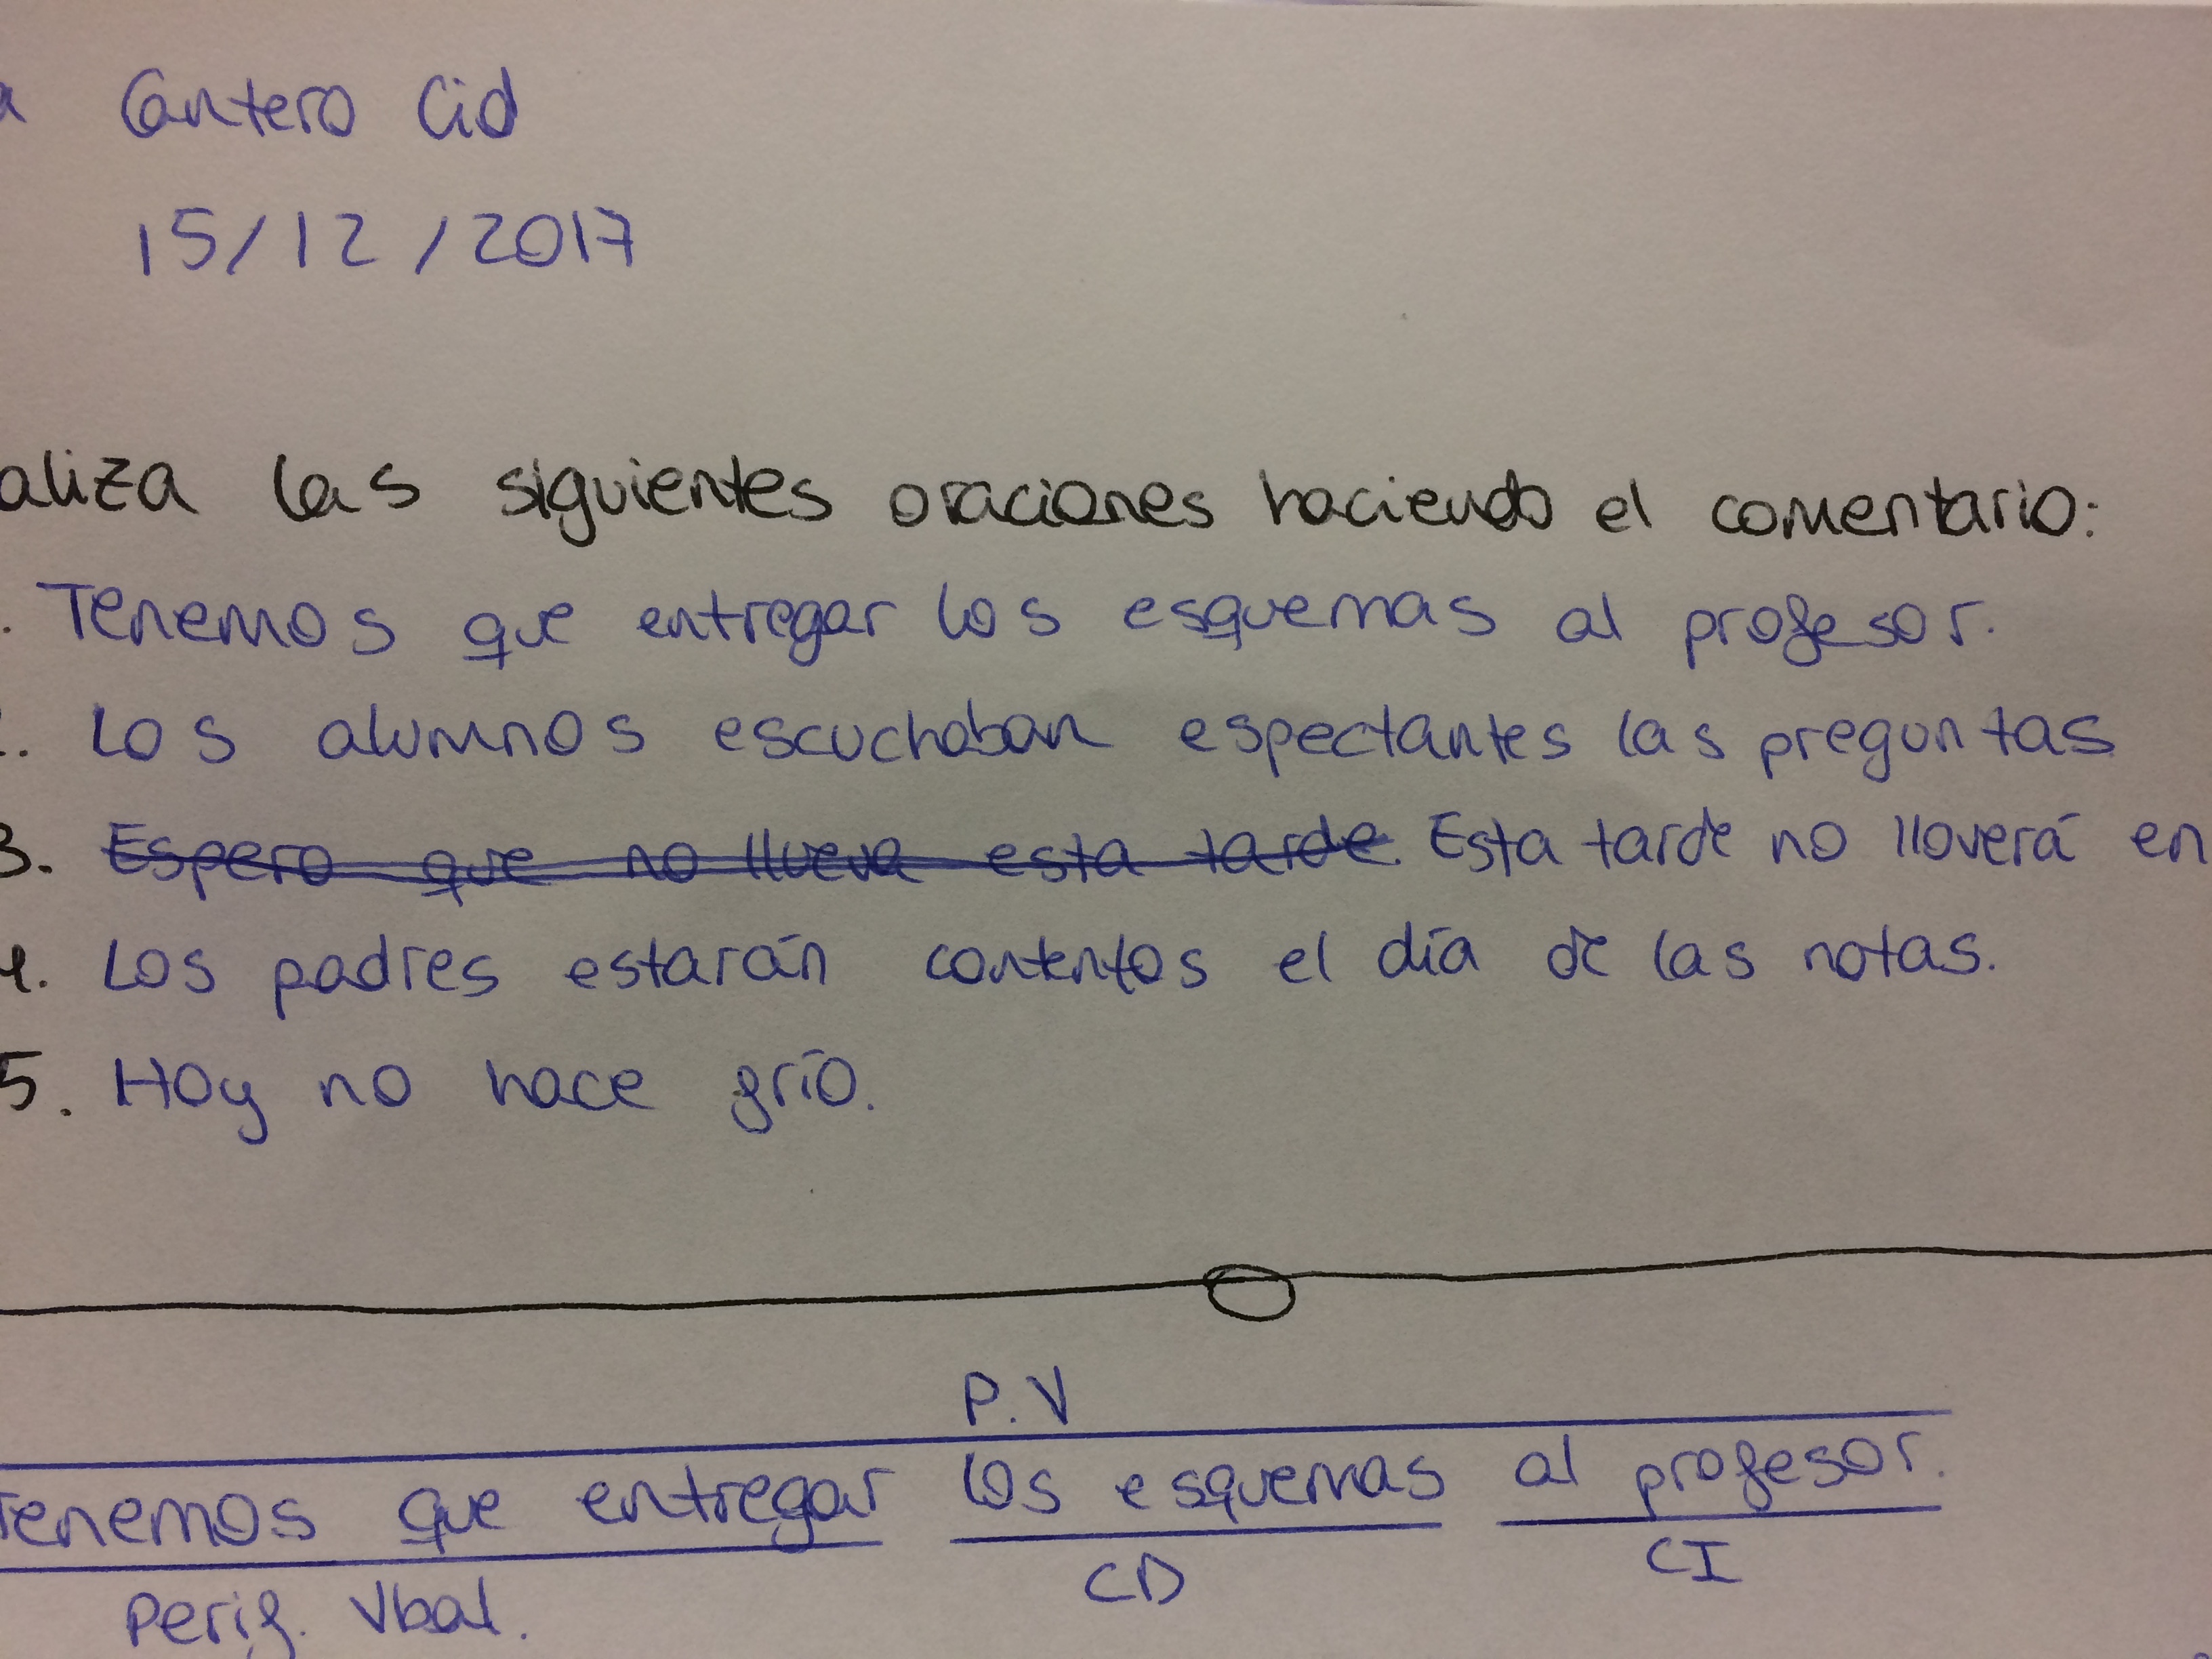 a Cantero Cid
15/12/2017
aliza las siguientes oraciones haciendo el comentario:
. Tenemos que entregar los esquemas al profesor.
. Los alumnos escuchaban espectantes las preguntas
3. Espero que no llueva esta tarde. Esta tarde no lloverá en
4. Los padres estarán contentos el día de las notas.
5. Hoy no hace frío.
P.V
Tenemos que entregar los esquemas al profesor.
Perif. Vbal. CD CI